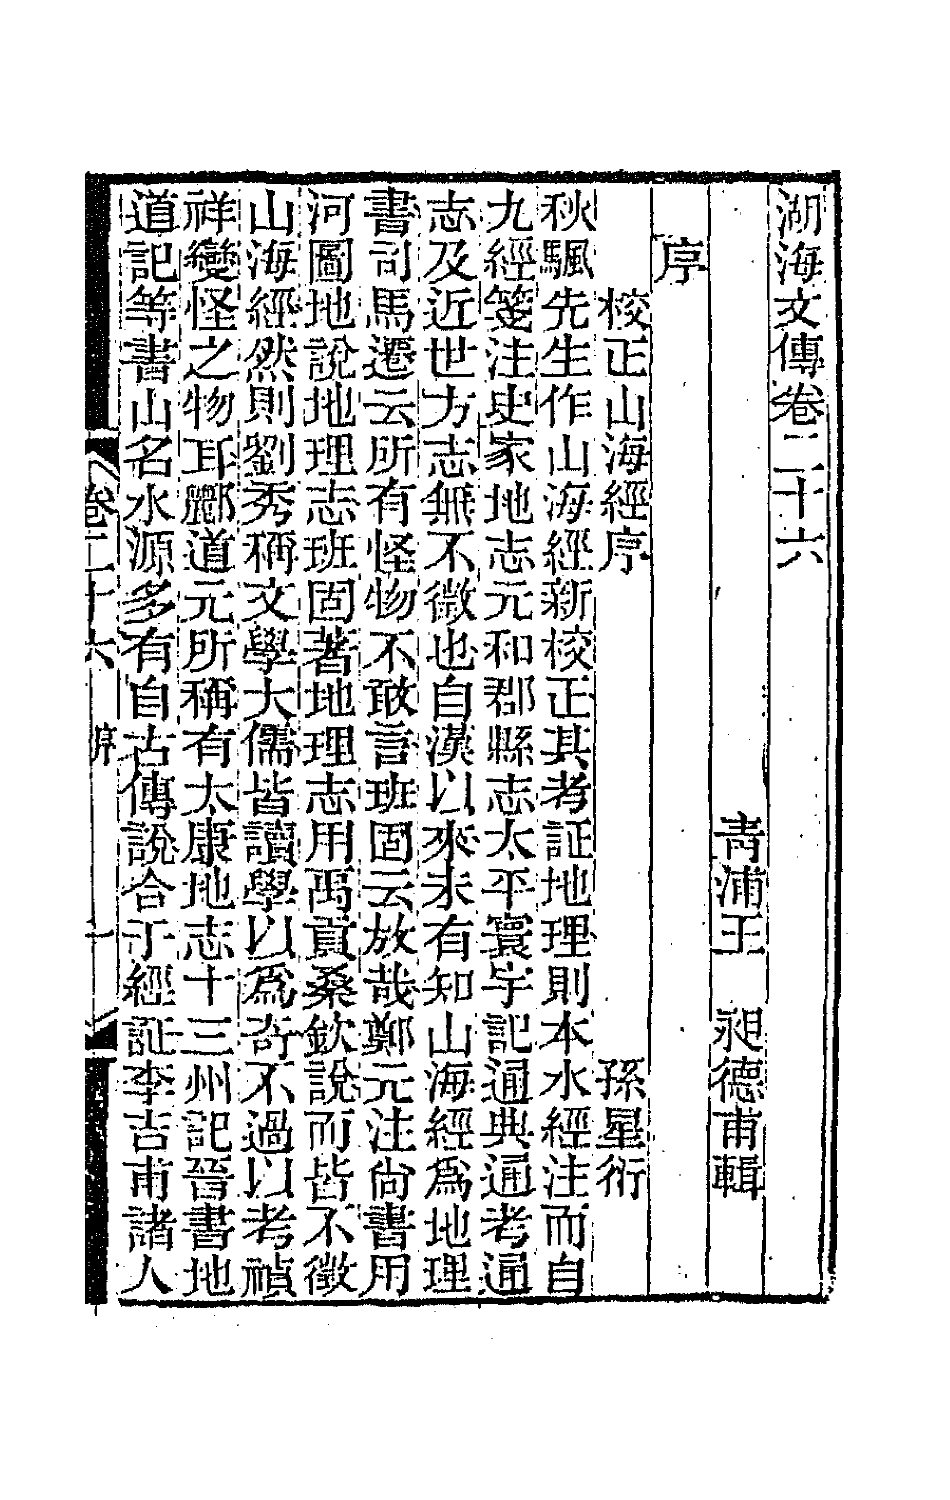 湖海文傳卷二十六
青浦王　昶德甫輯
序
校正山海經序　孫星衍
秋颿先生作山海經新校正其考証地理則本水經注而自
九經箋注史家地志元和郡縣志太平寰宇記通典通考通
志及近世方志無不徵也自漢以來未有知山海經爲地理
書司馬遷云所有怪物不敢言班固云放哉鄭元注尙書用
河圖地說地理志班固著地理志用禹貢桑欽說而皆不徵
山海經然則劉秀稱文學大儒皆讀學以爲奇不過以考禎
祥變怪之物耳酈道元所稱有太康地志十三州記晉書地
道記等書山名水源多有自古傳說合于經証李吉甫諸人
卷二十六
十